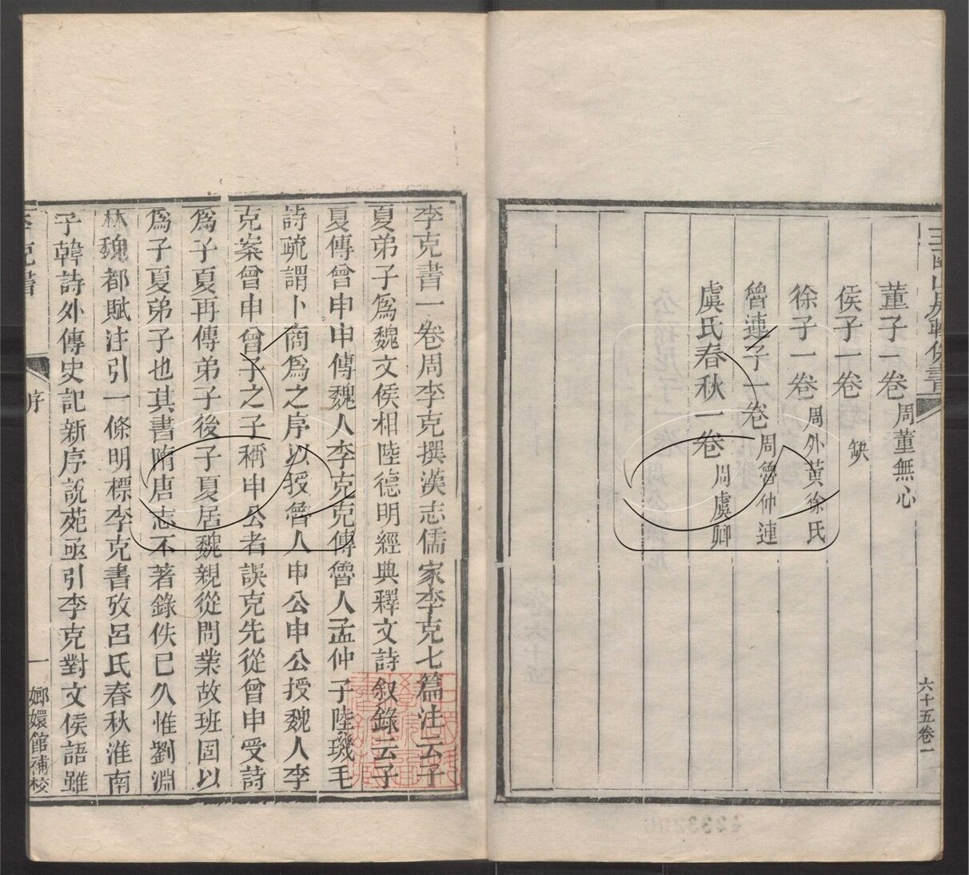 玉函山房輯佚書
六十五卷一
董子一卷 周董無心
侯子一卷 缺
徐子一卷 周外黃徐氏
魯連子一卷 周魯仲連
虞氏春秋一卷 周虞卿
李克書一卷周李克撰漢志儒家李克七篇注云子
夏弟子為魏文侯相陸德明經典釋文詩叙錄云子
夏傳曾申申傳魏人李克克傳魯人孟仲子陸璣毛
詩疏謂卜商為之序以授魯人申公申公授魏人李
克案曾申曾子之子稱申公者誤克先從曾申受詩
為子夏再傳弟子後子夏居魏親從問業故班固以
為子夏弟子也其書隋唐志不著錄佚已久惟劉淵
林魏都賦注引一條明標李克書攷呂氏春秋淮南
子韓詩外傳史記新序說苑亟引李克對文侯語雖
李克書
序
一
嫏嬛館補校